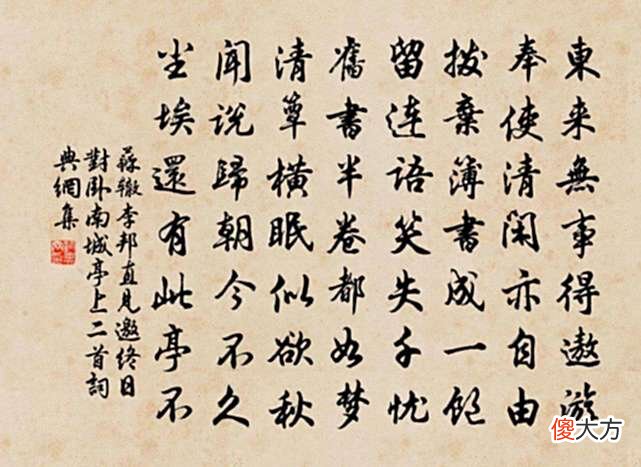 東来無事得遨游
奉使清閑亦自由
拨棄簿書成一飽
留連語笑失千忧
舊書半卷都如梦
清簟横眠似欲秋
聞説歸朝今不久
尘埃還有此亭不
蘇辙李邦直見邀終日
對卧南城亭上二首詞
典網集
傻大方